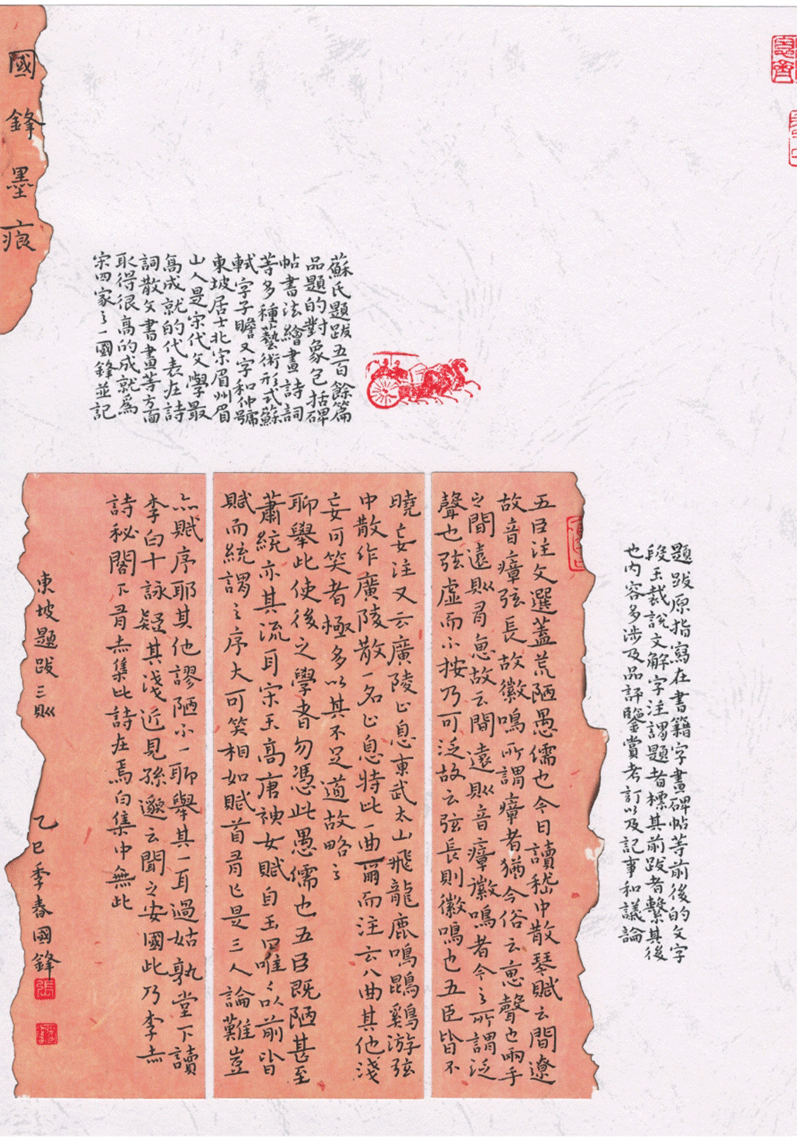 國鋒墨痕
題跋原指寫在書籍字畫碑帖等前後的文字
段玉裁說文解字注謂題者標其前跋者繫其後
也內容多涉及品評鑒賞考訂以及記事和議論
蘇氏題跋五百餘篇
品題的對象包括碑
帖書法繪畫詩詞
等多種藝術形式蘇
軾字子瞻又字和仲號
東坡居士北宋眉州眉
山人是宋代文學最
高成就的代表在詩
詞散文書畫等方面
取得很高的成就為
宋四家之一國鋒並記
五臣注文選蓋荒陋愚儒也今日讀嵇中散琴賦云間遼
故音瘴弦長故徽鳴所謂瘴者猶今俗云聲也兩手
之間遠則有故云間遠則音瘴徽鳴者今之所謂泛
聲也弦虛而不按乃可泛故云弦長則徽鳴也五臣皆不
曉妄注又云廣陵止息東武太山飛龍鹿鳴鵾雞游弦
中散作廣陵散一名止息特此一曲爾而注云八曲其他淺
妄可笑者極多以其不足道故略之
聊舉此使後之學者勿憑此愚儒也五臣既陋甚至
蕭統亦其流耳宋玉高唐神女賦自玉曰唯唯以前皆
賦而統謂之序大可笑相如賦首有亡是三人論難豈
亦賦序耶其他謬陋不一聊舉其一耳過姑孰堂下讀
李白十詠疑其淺近見孫邈云聞之安國此乃李赤
詩秘閣下有赤集此詩在焉白集中無此
東坡題跋三則 乙巳季春國鋒